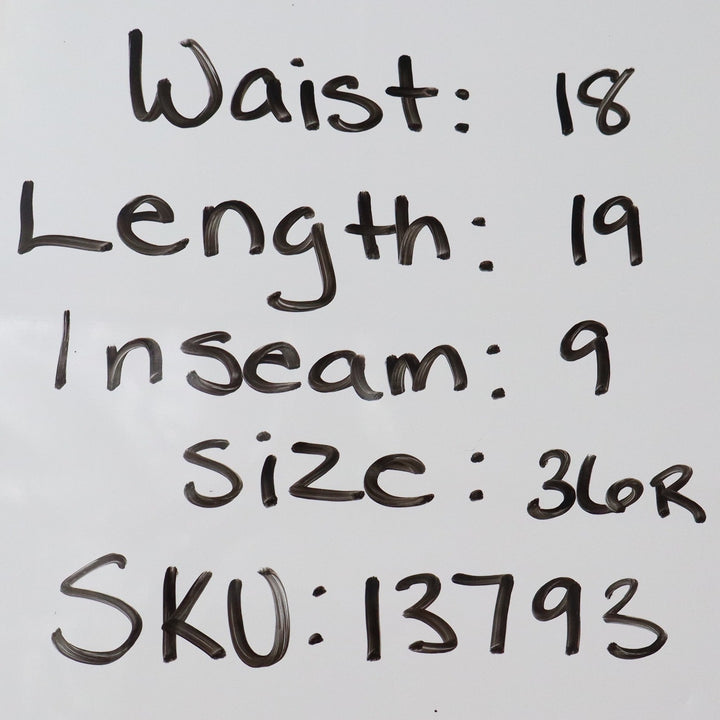 Waist: 18
Length: 19
Inseam: 9
Size: 36R
SKU: 13793